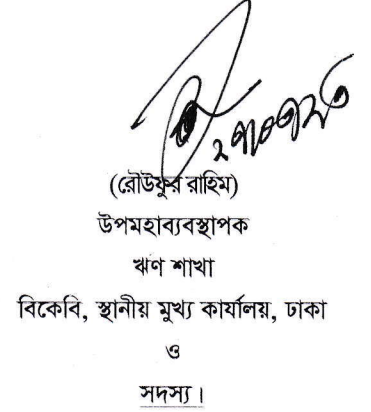 (রৌউফুর রাহিম)
উপমহাব্যবস্থাপক
ঋণ শাখা
বিকেবি, স্থানীয় মুখ্য কার্যালয়, ঢাকা
ও
সদস্য।